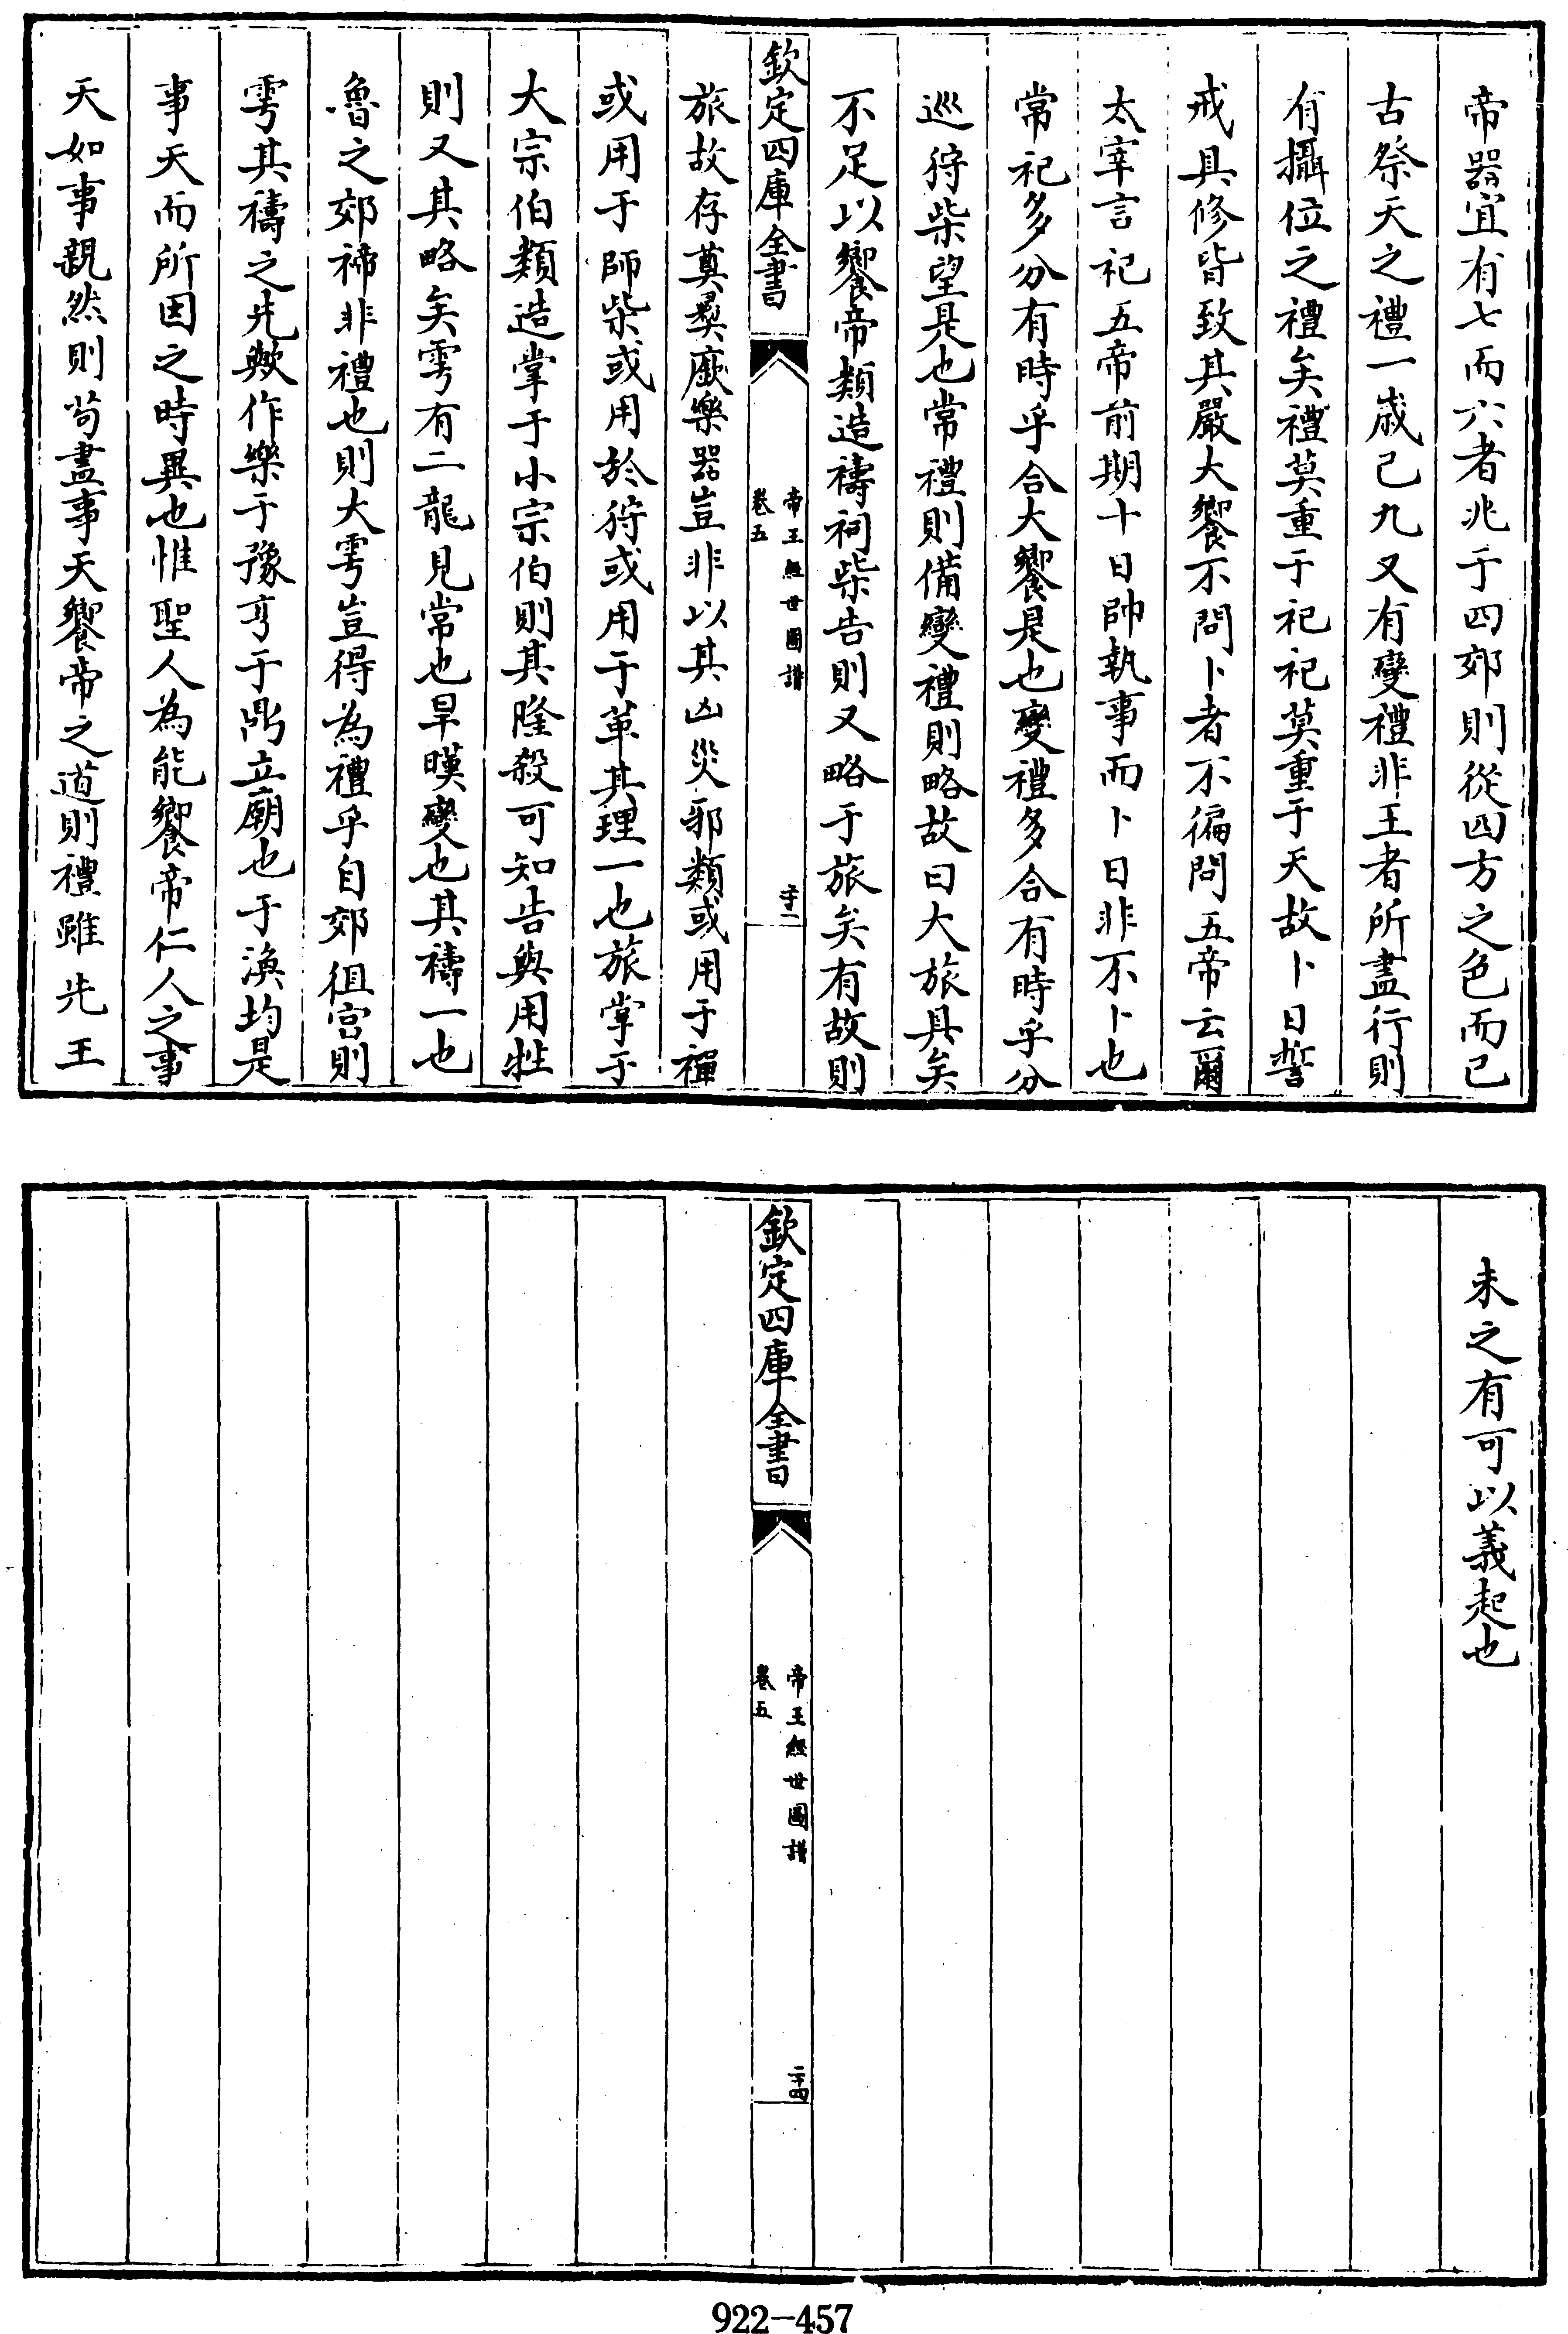 帝器宜有七而六者兆于四郊則從四方之色而已
古祭天之禮一歲已九又有變禮非王者所盡行則
有攝位之禮矣禮莫重于祀祀莫重于天故卜日誓
戒具修皆致其嚴大饗不問卜者不徧問五帝云爾
太宰言祀五帝前期十日帥執事而卜日非不卜也
常祀多分有時乎合大饗是也變禮多合有時乎分
巡狩柴望是也常禮則備變禮則略故曰大旅具矣
不足以饗帝類造禱祠柴告則又略于旅矣有故則
欽定四庫全書
帝王經世圖譜
卷五
二十三
旅故存奠彞廞樂器豈非以其凶災邪類或用于禪
或用于師柴或用於狩或用于革其理一也旅掌于
大宗伯類造掌于小宗伯則其隆殺可知告與用牲
則又其略矣雩有二龍見常也旱暵變也其禱一也
魯之郊禘非禮也則大雩豈得為禮乎自郊徂宫則
雩其禱之先歟作樂于豫亨于鼎立廟也于渙均是
事天而所因之時異也惟聖人為能饗帝仁人之事
天如事親然則茍盡事天饗帝之道則禮雖先王
未之有可以義起也
欽定四庫全書
帝王經世圖譜
卷五
二十四
922-457